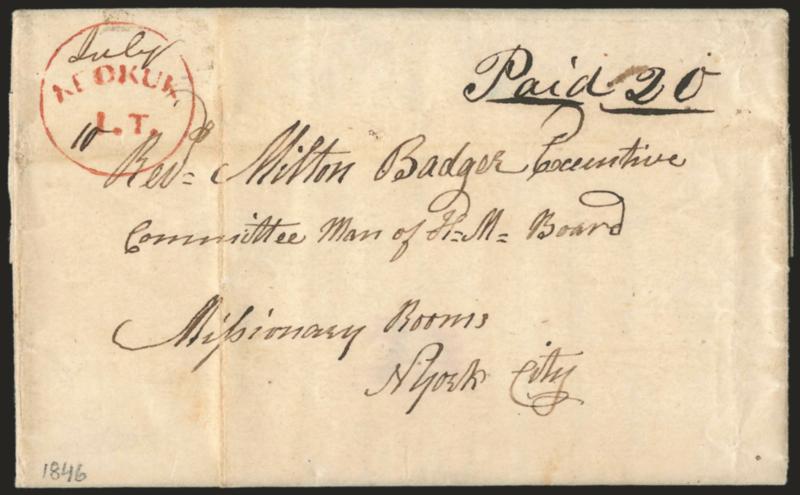 July
KEOKUK,
I.T.
10
Paid 20
Revd= Milton Badger Executive
Committee Man of H=M= Board
Missionary Rooms
N York City
1846